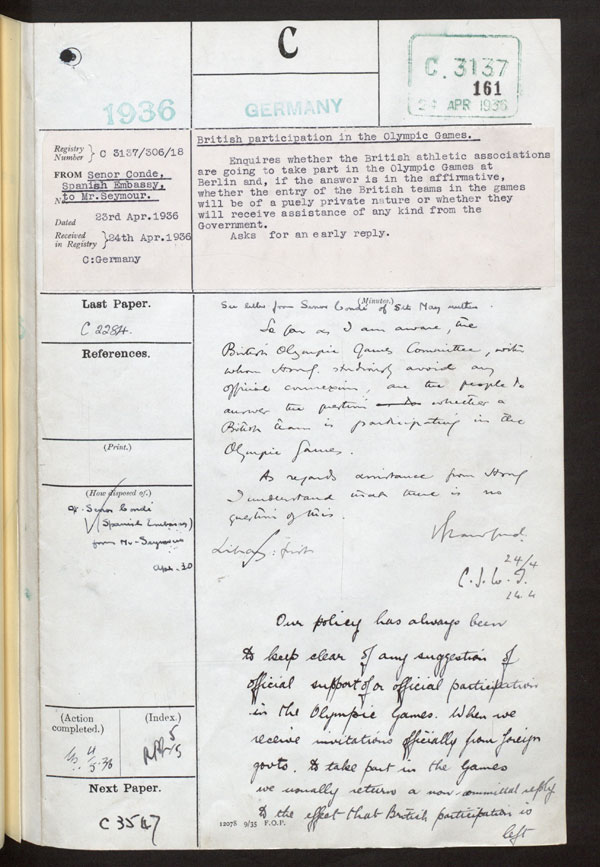 C
1936
GERMANY
C. 3137
161
24 APR 1936
Registry
Number } C 3137/306/18
FROM Senor Conde,
Spanish Embassy,
to Mr.Seymour.
Dated 23rd Apr.1936
Received
in Registry } 24th Apr.1936
C:Germany
British participation in the Olympic Games.
Enquires whether the British athletic associations
are going to take part in the Olympic Games at
Berlin and, if the answer is in the affirmative,
whether the entry of the British teams in the games
will be of a puely private nature or whether they
will receive assistance of any kind from the
Government.
Asks for an early reply.
Last Paper.
C 2284.
References.
(Print.)
(How disposed of.)
Senor Conde
(Spanish Embassy)
from Mr. Seymour
Apl. 30
(Action
completed.)
(Index.)
Next Paper.
C 3547
(Minutes.)
See letter from Senor Conde of 5th May within.
So far as I am aware, the
British Olympic Games Committee, with
whom HMG. studiously avoid any
official connexion, are the people to
answer the question whether a
British team is participating in the
Olympic Games.
As regards assistance from HMG
I understand that there is no
question of this.
Library: first
24/4
Our policy has always been
to keep clear of any suggestion of
official support of or official participation
in the Olympic Games. When we
receive invitations officially from foreign
govts. to take part in the Games
we usually return a non-committal reply
to the effect that British participation is
left
12078 9/35 F.O.P.